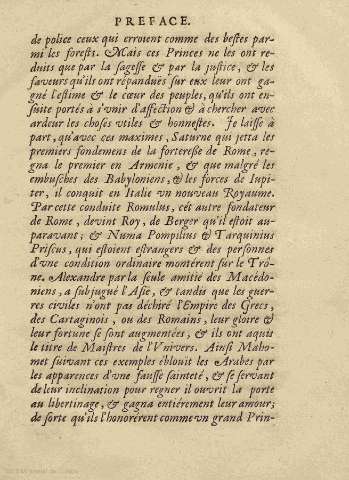 PREFACE.
de police ceux qui erroient comme des bestes par-
mi les forests. Mais ces Princes ne les ont re-
duits que par la sagesse & par la justice, & les
faveurs qu'ils ont répandués sur eux leur ont ga-
gné l'estime & le cœur des peuples, qu'ils ont en-
suite portés à s'unir d'affection & à chercher avec
ardeur les choses vtiles & honnestes. Je laisse à
part, qu'avec ces maximes, Saturne qui jetta les
premiers fondemens de la forteresse de Rome, re-
gna le premier en Armenie, & que malgré les
embusches des Babyloniens, & les forces de Iupi-
ter, il conquit en Italie vn nouveau Royaume.
Par cette conduite Romulus, cét autre fondateur
de Rome, devint Roy, de Berger qu'il estoit au-
paravant; & Numa Pompilius & Tarquinius
Priscus, qui estoient estrangers & des personnes
d'vne condition ordinaire montérent sur le Trô-
ne. Alexandre par la seule amitié des Macédo-
niens, a subjugué l'Asie, & tandis que les guer-
res civiles n'ont pas déchiré l'Empire des Grecs,
des Cartaginois, ou des Romains, leur gloire &
leur fortune se sont augmentées, & ils ont aquis
le titre de Maistres de l'Vnivers. Ainsi Maho-
met suivant ces exemples éblouit les Arabes par
les apparences d'vne fausse sainteté, & se servant
de leur inclination pour regner il ouvrit la porte
au libertinage, & gagna entiérement leur amour;
de sorte qu'ils l'honorérent comme vn grand Prin-